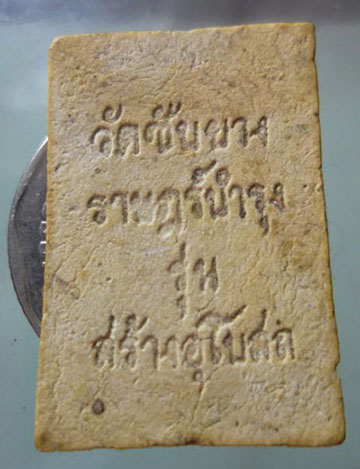 วัดซับยาง
ราษฎร์บำรุง
รุ่น
สร้างอุโบสถ